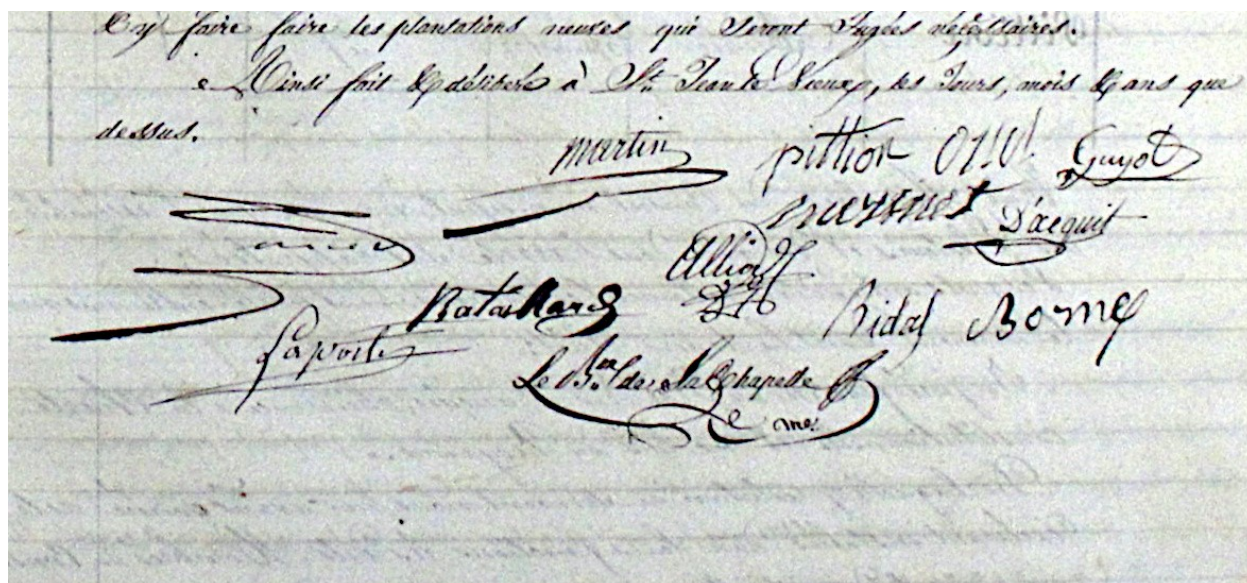 & y faire faire les plantations neuves qui seront Jugées nécessaires.
Ainsi fait & délibéré à St. Jean le Vieux, les Jours, mois & ans que
dessus.
martin pittion Guyot
D'acquit
Allion
Bataillard Ridal Borne
Laporte
Le Bon. de La Chapelle
me